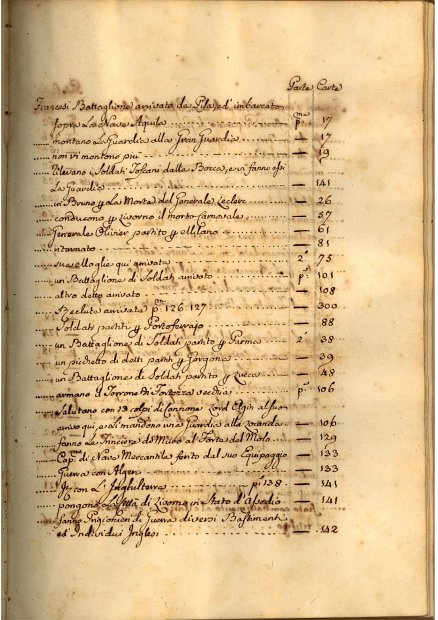 Parte Carte
Francesi Battaglione arrivato da Pisa, ed imbarcato
sopra La Nave Aquila p.ma 17
montano La Guardia alla Gran Guardia — 17
non vi montono più — 19
Levano i Soldati Toscani dalla Bocca, e vi fanno essi p.
La Guardia — 141
in Bruno p La Morte del Generale Leclerc — 26
conducono p Livorno il morto Carnovale — 57
Generale Olivier partito p Milano — 61
ritornato — 81
sua moglie qui arrivata 2. 75
un Battaglione di Soldati arrivato p. 101
altro detto arrivato — 108
Reclute arrivate p. 126. 127 — 300
Soldati partiti p Portoferrajo — 88
un Battaglione di Soldati partito p Parma 2. 38
un picchetto di detti partiti p Gorgona — 39
un Battaglione di Soldati partito p Lucca — 48
armano il Torrone di Fortezza vecchia p. 106
Salutano con 13 colpi di Cannone Lord Elgin al suo
arrivo qui, e di mandono una Guardia alla Locanda — 106
fanno Le Trinciere al Molo — 129
Cap. di Nave Mercantile ferito dal suo Equipaggio — 133
Guerra con Algeri — 133
con L'Inghilterra p. 138 — 141
pongono La Città di Livorno in Stato d'Assedio — 141
fanno Prigionieri di Guerra diversi Bastimenti
ed Individui Inglesi — 142